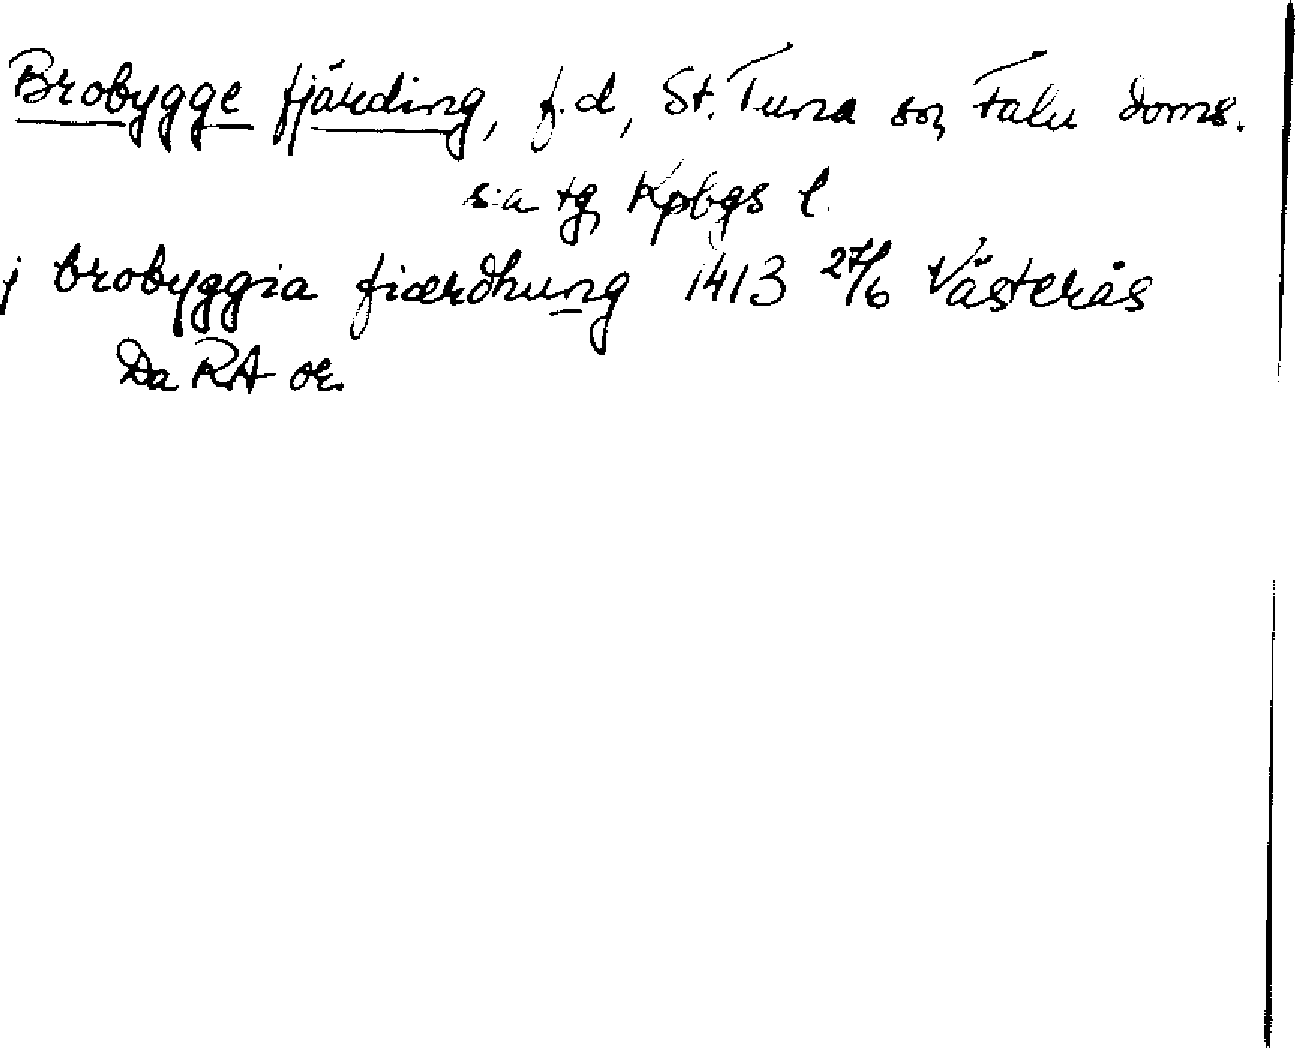 Brobygge fjärding, f.d, St. Tuna sn, Falu doms.
s:a tg, Kpbgs l.
j brobyggia fiærdhung 1413 27/6 Västerås
Da RA or.